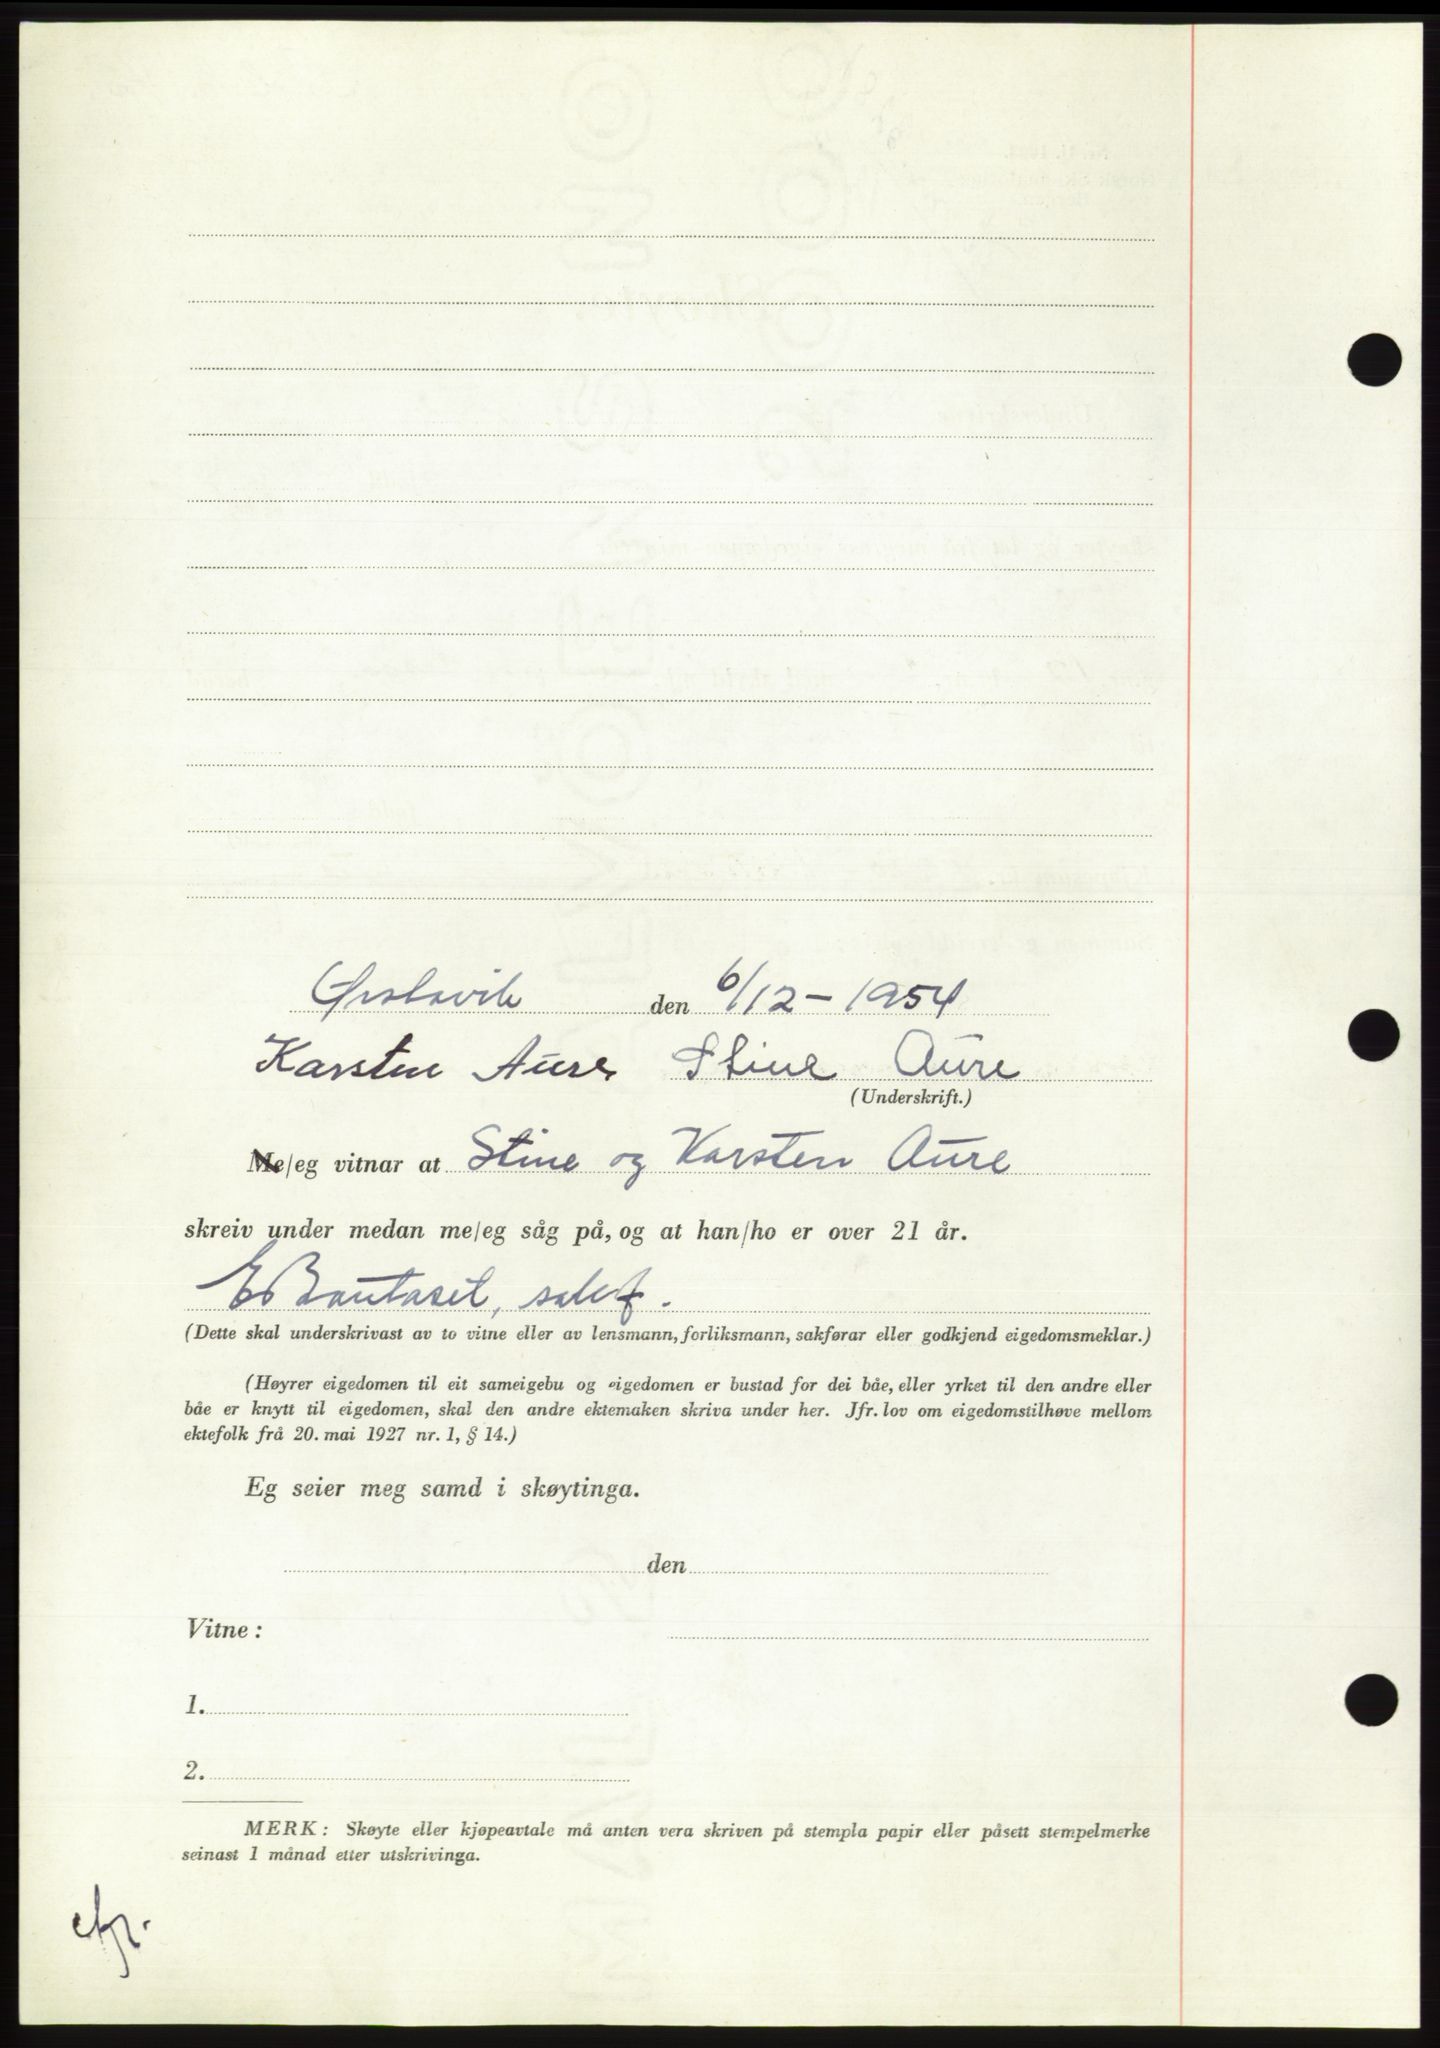 Ørstavik den 6/12 - 1954
Karsten Aure Stine Aure
(Underskrift.)
Me/eg vitnar at Stine og Karsten Aure
skreiv under medan me/eg såg på, og at han/ho er over 21 år.
E Bautaset, sakf.
(Dette skal underskrivast av to vitne eller av lensmann, forliksmann, sakførar eller godkjend eigedomsmeklar.)
(Høyrer eigedomen til eit sameigebu og eigedomen er bustad for dei båe, eller yrket til den andre eller
båe er knytt til eigedomen, skal den andre ektemaken skriva under her. Jfr. lov om eigedomstilhøve mellom
ektefolk frå 20. mai 1927 nr. 1, § 14.)
Eg seier meg samd i skøytinga.
den
Vitne :
1.
2.
MERK : Skøyte eller kjøpeavtale må anten vera skriven på stempla papir eller påsett stempelmerke
seinast 1 månad etter utskrivinga.